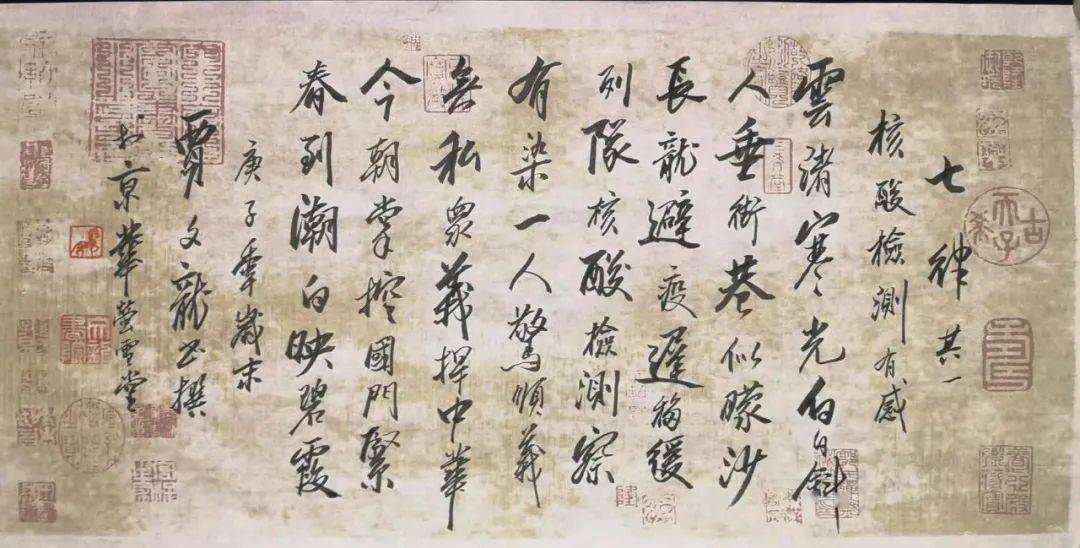 七律 其一
核酸檢測有感
雲渚寒光白日斜
人垂街巷似朦沙
長龍避疫遲移緩
列隊核酸檢測察
有染一人驚順義
無私眾義捍中華
今朝掌控國門緊
春到潮白映碧霞
庚子年歲末
賈文龍書撰
於京華螢雪堂
古稀天子